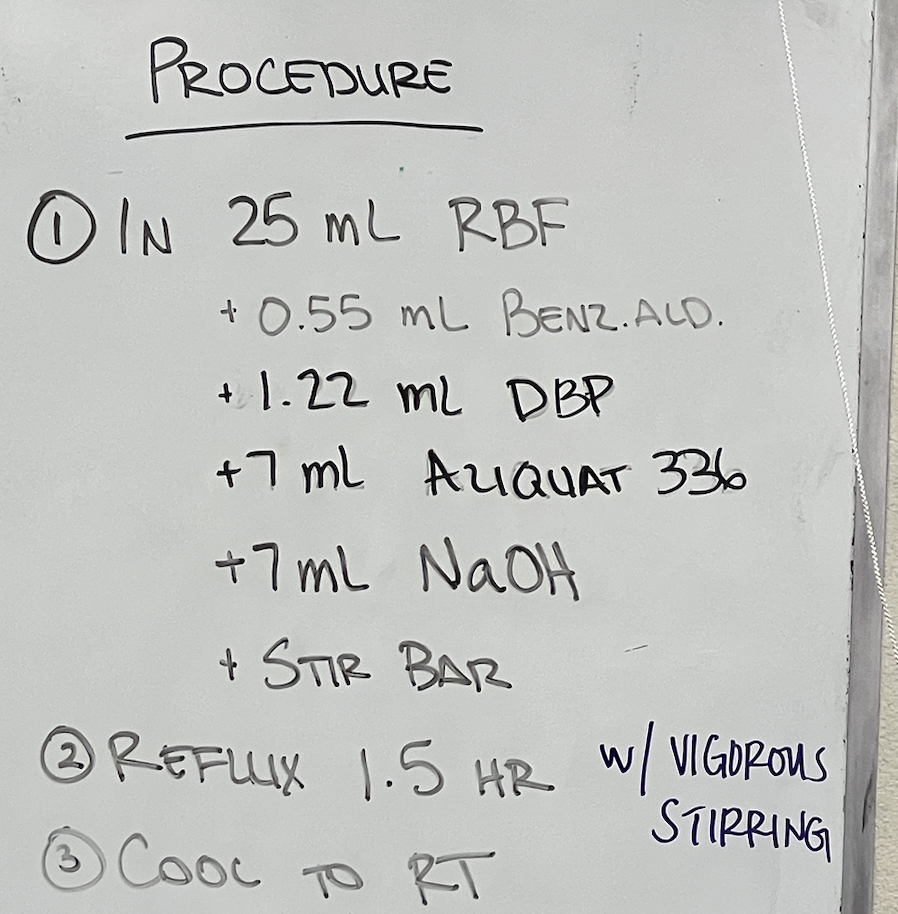 PROCEDURE
① IN 25 mL RBF
+ 0.55 mL BENZ.ALD.
+ 1.22 mL DBP
+7 mL ALIQUAT 336
+7 mL NaOH
+ STIR BAR
② REFLUX 1.5 HR w/ VIGOROUS
STIRRING
③ COOL TO RT